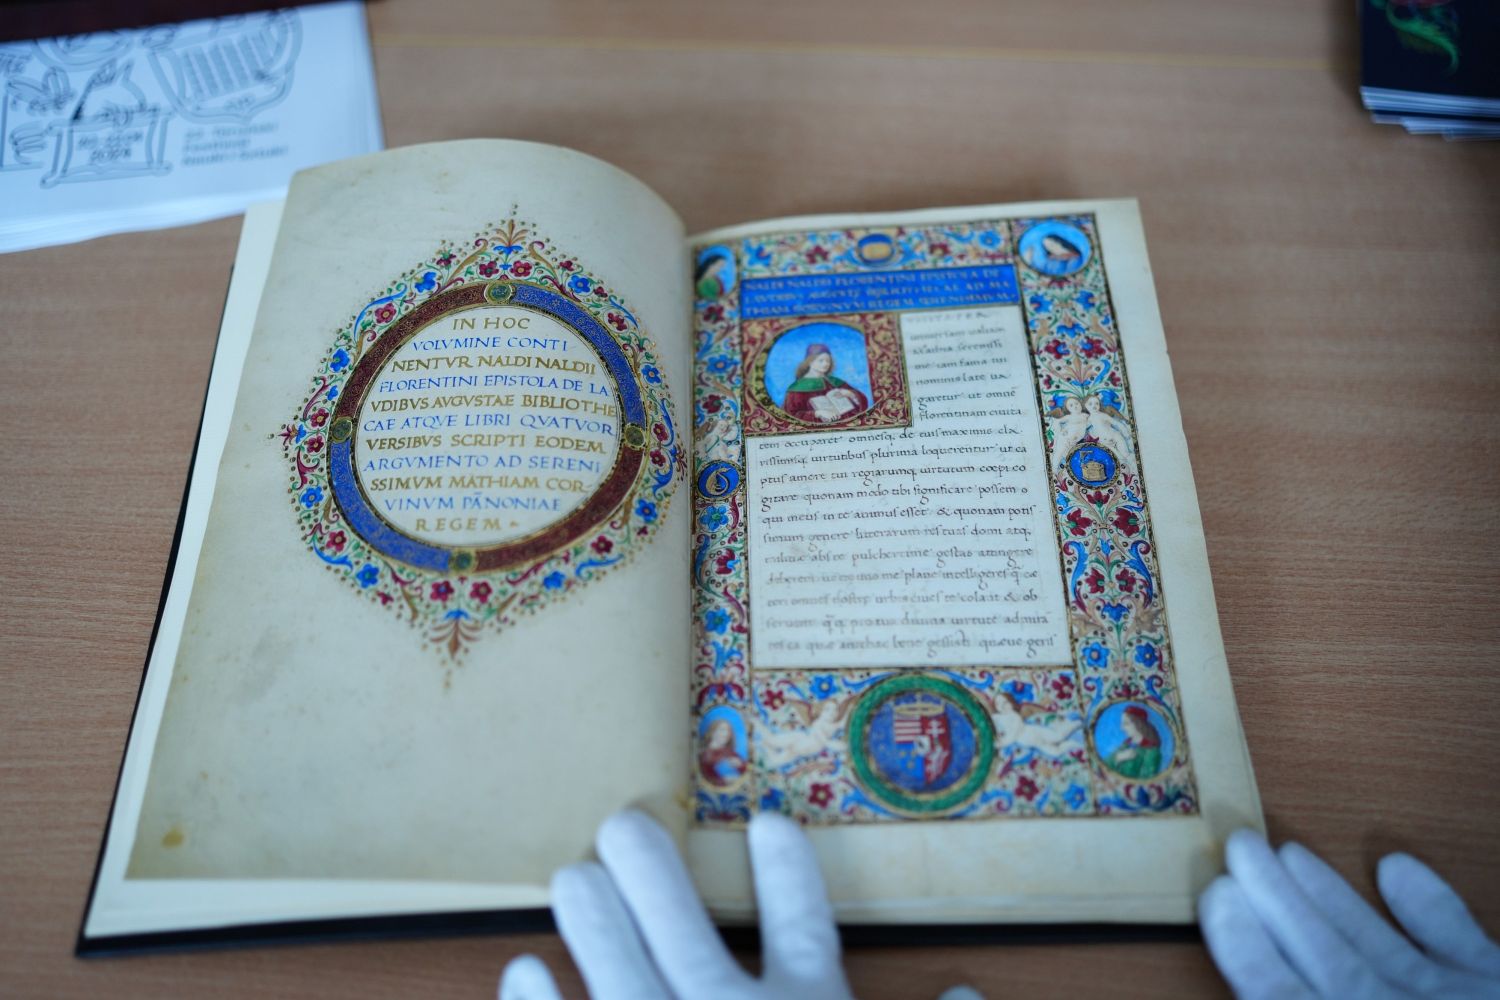 IN HOC
VOLVMINE CONTI-
NENTVR NALDI NALDII
FLORENTINI EPISTOLA DE LA
VDIBVS AVGVSTAE BIBLIOTHE
CAE ATQVE LIBRI QVATVOR
VERSIBVS SCRIPTI EODEM
ARGVMENTO AD SERENI
SSIMVM MATHIAM COR-
VINVM PĀNONIAE
REGEM
NALDI NALDII FLORENTINI EPISTOLA DE
LAVDIBVS AVGVSTE BIBLIOTHECAE AD MA
THIAM CORVINVM REGEM SERENISSIMVM
me iam fama tui
nominis late ua
garetur ut omnē
florentinam ciuita
tem occuparet omnesq. de tuis maximis cla
rissimisq. uirtutibus plurima loquerentur ut ca
ptus amore tui regiarumq. uirtutum coepi co
gitare quonam modo tibi significare possem o
qui meus in te animus esset & quonam potis
simum genere litterarum res tuas domi atq.
militiae abs te pulcherrime gestas attingere
deberem me plane intelligeres
nostrae urbis ciues te colant & ob
seruent pro tua diuina uirtute admira
quae antehac bene gessisti quaeue geris